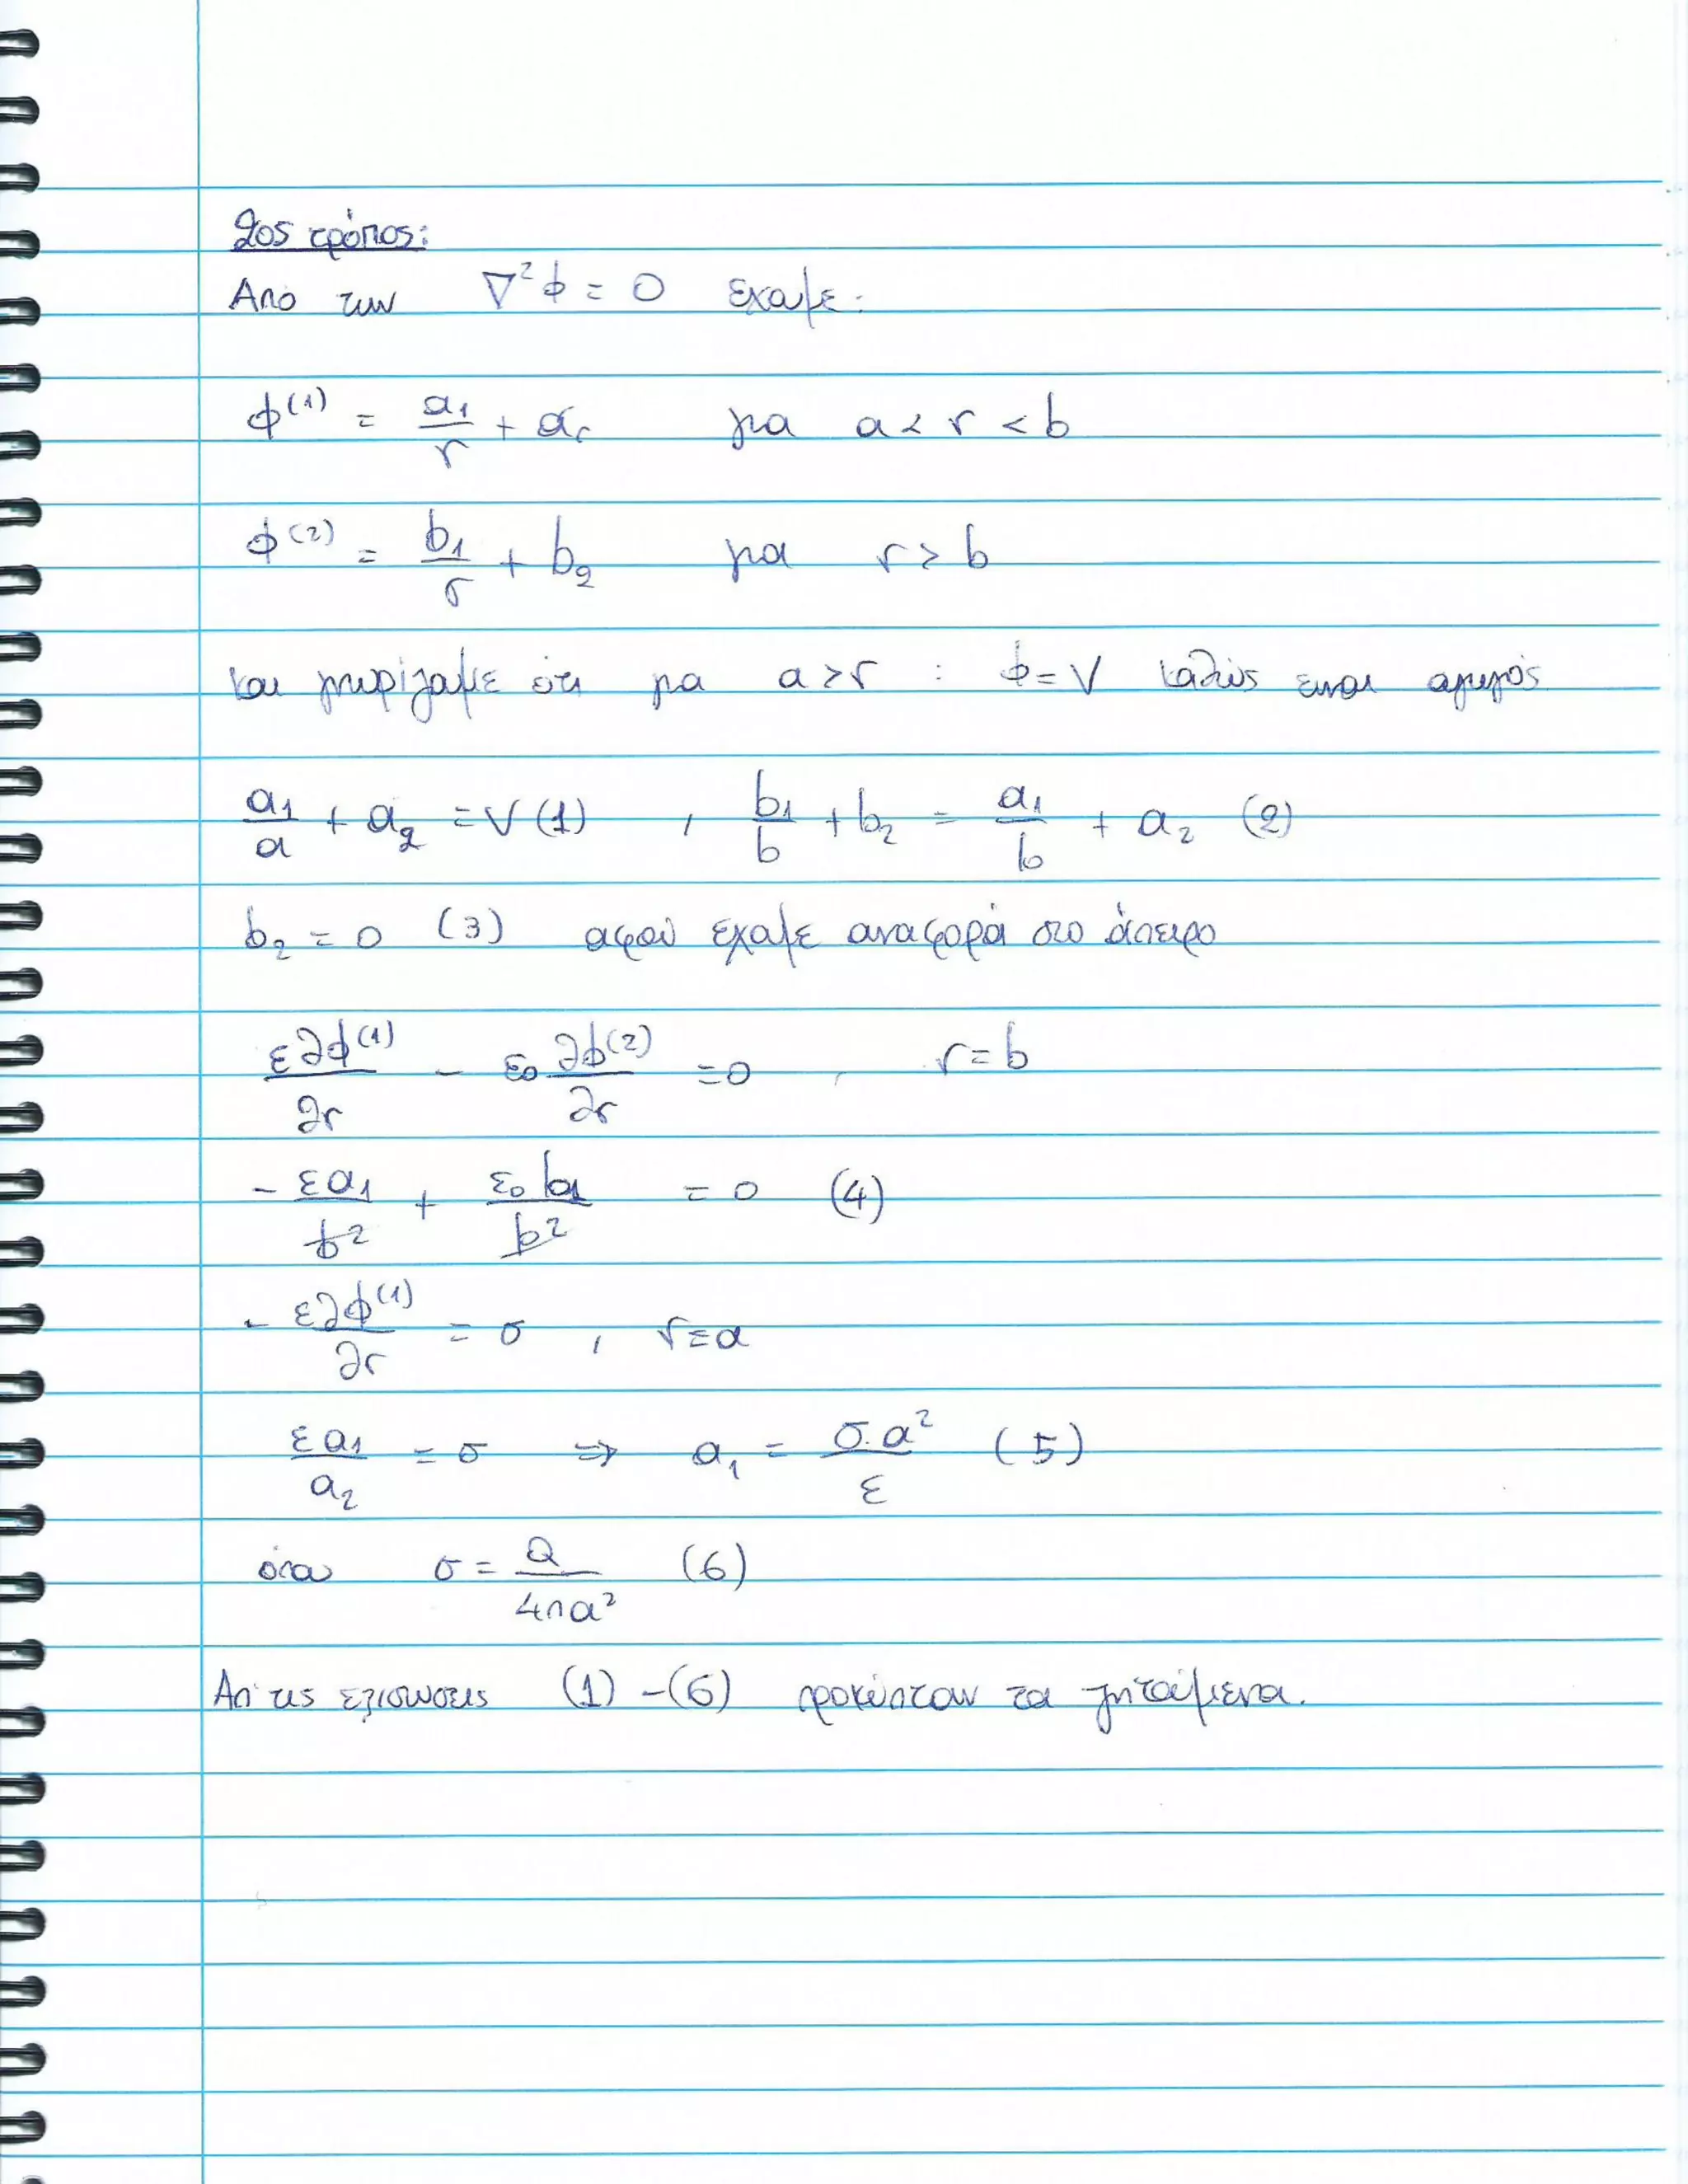 2ος τρόπος:
Από την ∇²Φ = 0 έχουμε:
Φ⁽¹⁾ = a₁/r + a₂ για a < r < b
Φ⁽²⁾ = b₁/r + b₂ για r > b
και γνωρίζουμε ότι για a > r : Φ = V καθώς είναι αγωγός
a₁/a + a₂ = V (1) , b₁/b + b₂ = a₁/b + a₂ (2)
b₂ = 0 (3) αφού έχουμε αναφορά στο άπειρο
ε∂Φ⁽¹⁾/∂r - ε₀ ∂Φ⁽²⁾/∂r = 0 , r = b
- εa₁/b² + ε₀b₁/b² = 0 (4)
- ε∂Φ⁽¹⁾/∂r = σ , r = a
εa₁/a₂ = σ ⇒ a₁ = σ.a²/ε (5)
όπου σ = Q/4πa² (6)
Απ' τις εξισώσεις (1) - (6) προκύπτουν τα ζητούμενα.